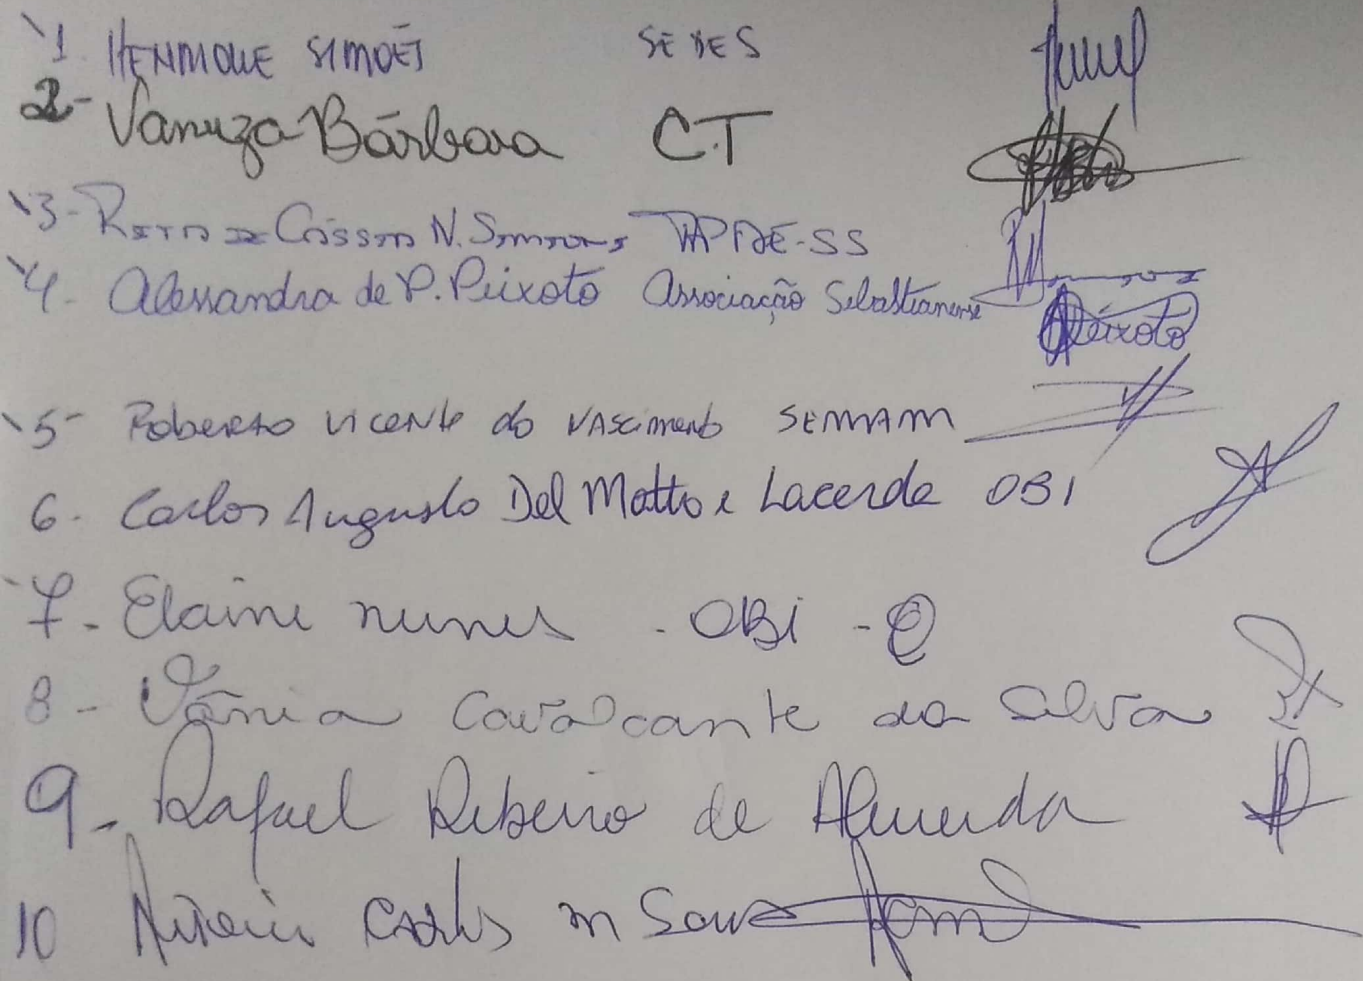 1 HENRIQUE SIMÕES SEDES
2- Vanuza Bárbara C.T
3- Rita de Cássia N. Simões APAE-SS
4- Alessandra de P. Peixoto Associação Sebastianense Peixoto
5- Roberto Vicente do Nascimento SEMAM
6- Carlos Augusto Del Matto e Lacerda OBI
7- Elaine nunes - OBi -
8- Vânia Cavalcante da Silva
9- Rafael Ribeiro de Almeida
10 Antonio Carlos m Souza